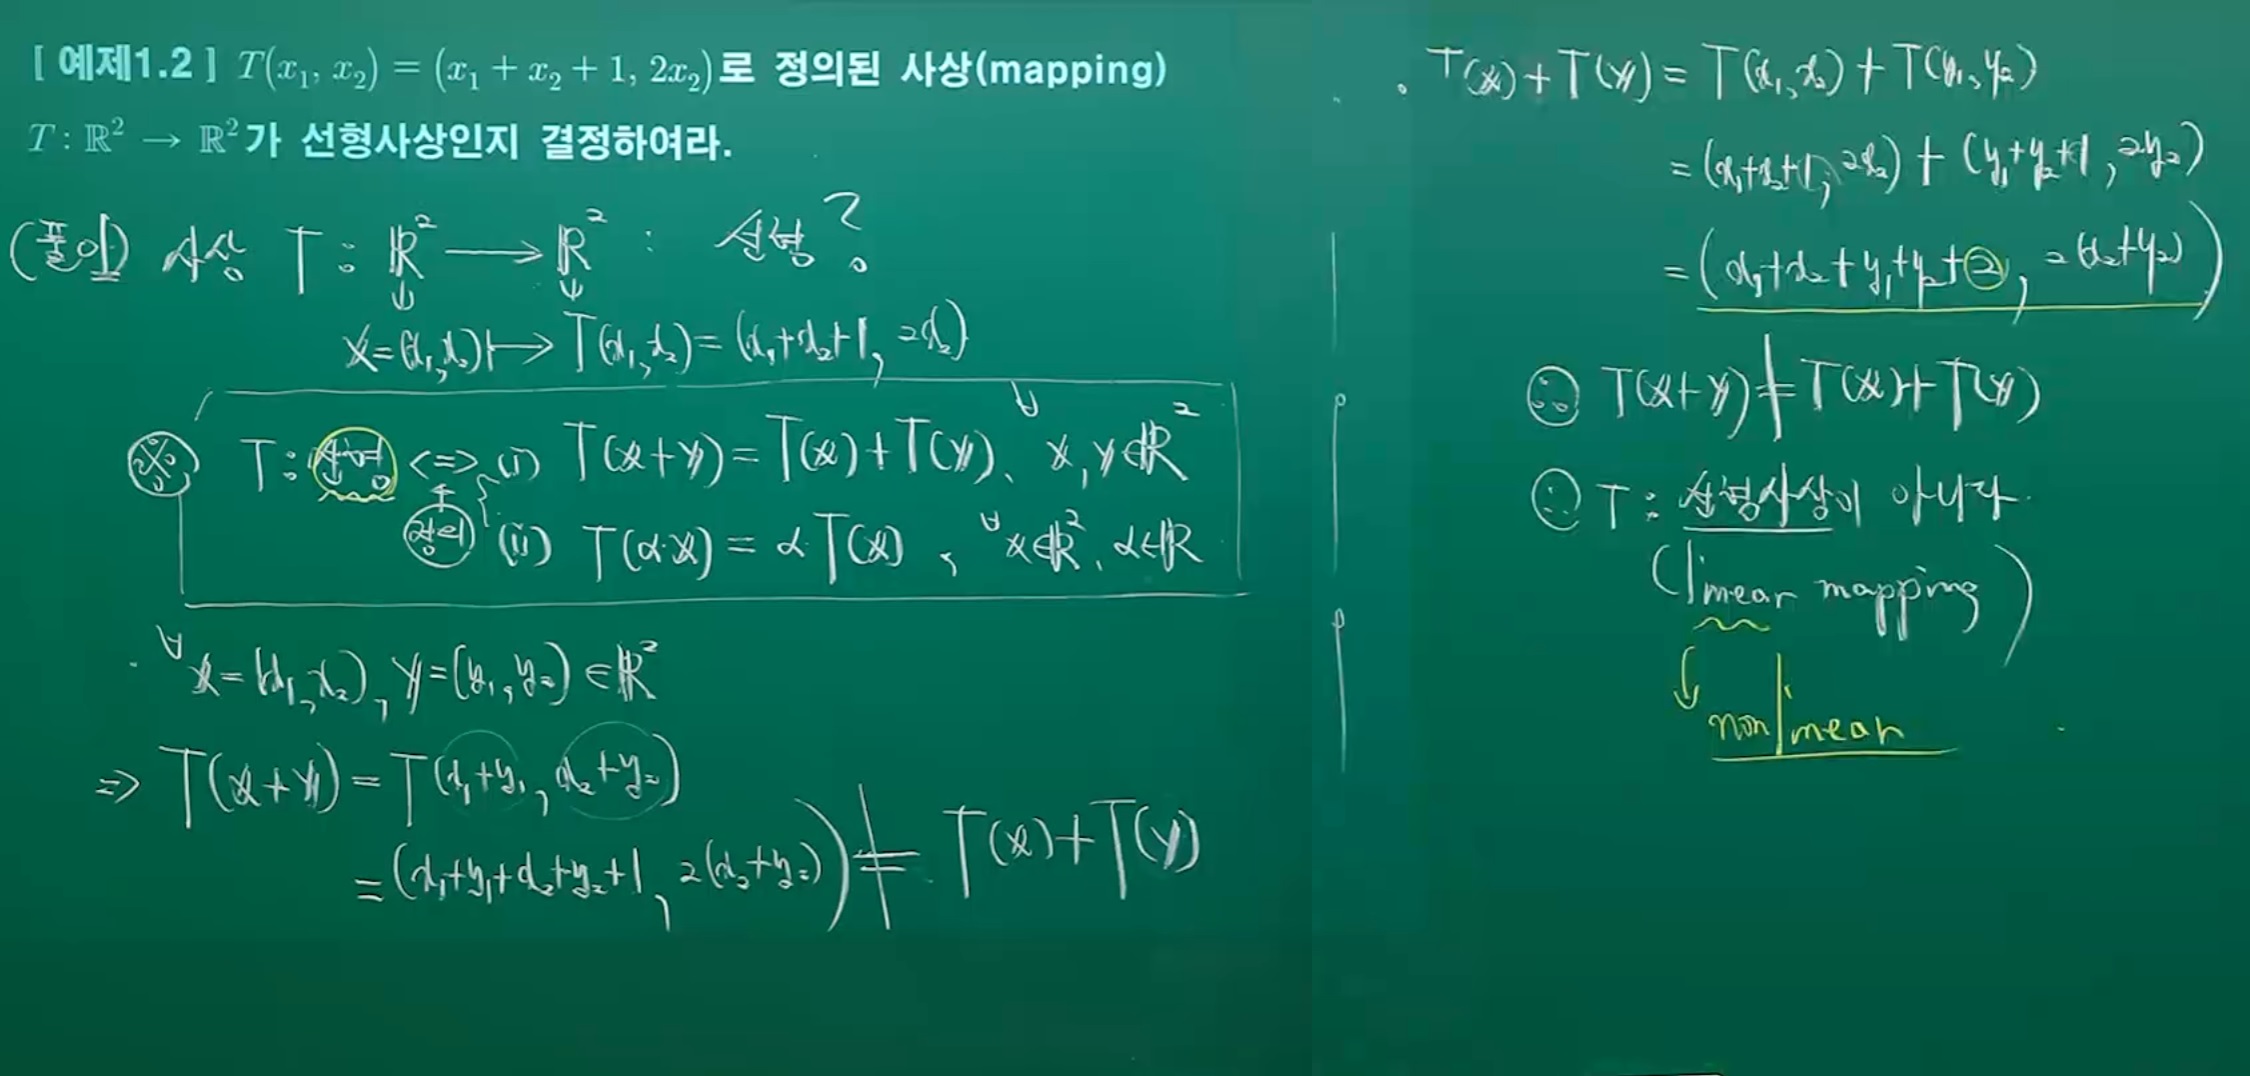 [ 예제1.2 ] T(x₁, x₂) = (x₁ + x₂ + 1, 2x₂)로 정의된 사상(mapping)
T : ℝ² → ℝ²가 선형사상인지 결정하여라.
(풀이) 사상 T : ℝ² ⟶ ℝ² : 선형?
x=(x₁, x₂) ↦ T(x₁, x₂) = (x₁+x₂+1, 2x₂)
※ T : 선형 <=> (i) T(x+y) = T(x)+T(y), ∀x, y∈ℝ²
정의 (ii) T(α·x) = αT(x), ∀x∈ℝ², α∈ℝ
· ∀x=(x₁, x₂), y=(y₁, y₂) ∈ℝ²
⇒ T(x+y) = T(x₁+y₁, x₂+y₂)
= (x₁+y₁+x₂+y₂+1, 2(x₂+y₂)) ≠ T(x)+T(y)
· T(x)+T(y) = T(x₁, x₂) + T(y₁, y₂)
= (x₁+x₂+1, 2x₂) + (y₁+y₂+1, 2y₂)
= (x₁+x₂+y₁+y₂+2, 2(x₂+y₂))
∴ T(x+y) ≠ T(x)+T(y)
∴ T : 선형사상이 아니다.
(linear mapping)
↓
nonlinear